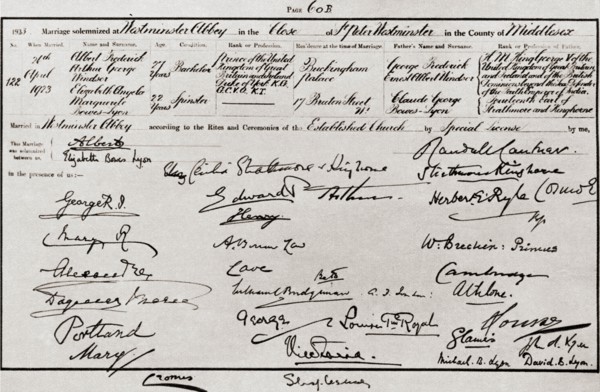 PAGE 60B
1923 Marriage solemnized at Westminster Abbey in the Close of St Peter Westminster in the County of Middlesex
When Married. Name and Surname. Age. Condition. Rank or Profession. Residence at the time of Marriage. Father's Name and Surname. Rank or Profession of Father.
122
26th April 1923
Albert Frederick Arthur George Windsor
27 Years
Bachelor
Prince of the United Kingdom of Great Britain and Ireland Duke of York K.G. G.C.V.O. K.T.
Buckingham Palace
George Frederick Ernest Albert Windsor
H.M. King George V of the United Kingdom of Great Britain and Ireland and of the British Dominions beyond the Seas Defender of the Faith Emperor of India.
Elizabeth Angela Marguerite Bowes-Lyon
22 Years
Spinster
17 Bruton Street W
Claude George Bowes-Lyon
Fourteenth Earl of Strathmore and Kinghorne
Married in Westminster Abbey according to the Rites and Ceremonies of the Established Church by Special License by me,
This Marriage was solemnized between us,
Albert
Elizabeth Bowes-Lyon
Randall Cantuar
in the presence of us:—
Cecilia Strathmore & Kinghorne
Strathmore & Kinghorne
George R.I.
Edward P
Arthur
Herbert E Ryle
Henry
Mary R
W. Brechin: Primus
Alexandra
Cave
Cambridge
William C Bridgeman
Athlone.
Portland
George
Louise Pss Royal
Glamis
Mary
Victoria
Michael. B. Lyon
David. B. Lyon.
Cromer